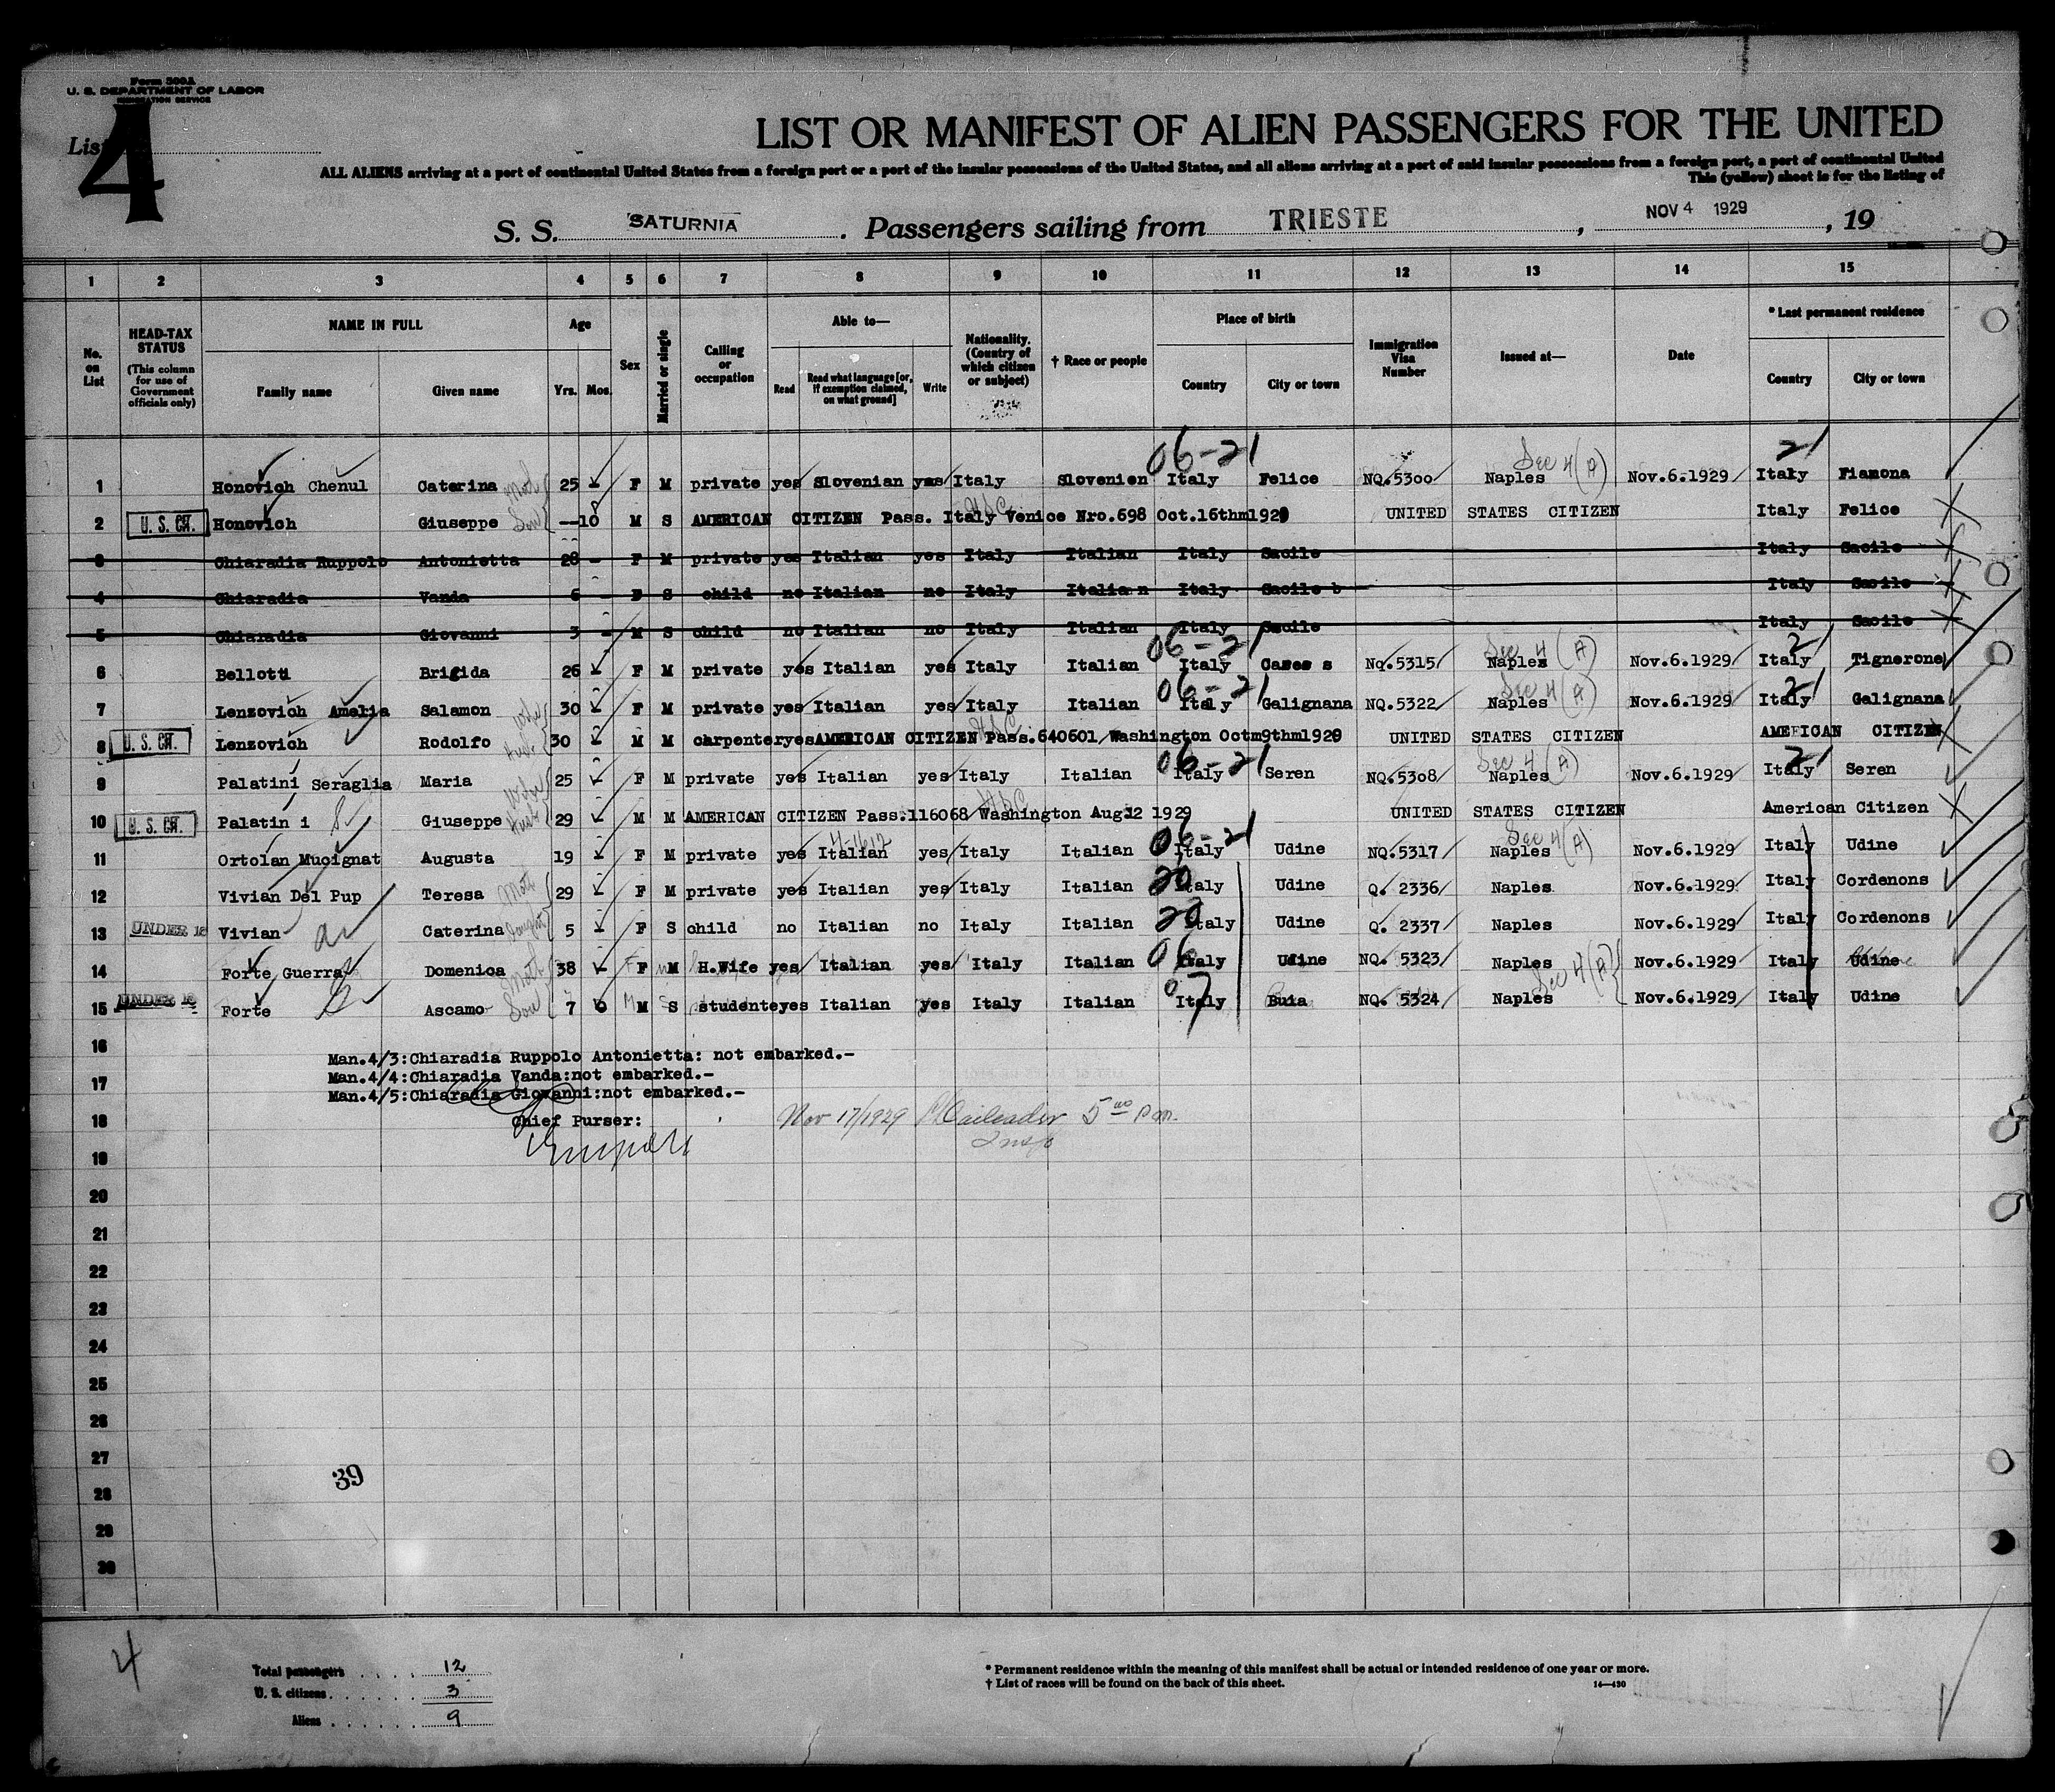 Form 500A
U. S. DEPARTMENT OF LABOR
IMMIGRATION SERVICE
List 4
LIST OR MANIFEST OF ALIEN PASSENGERS FOR THE UNITED
ALL ALIENS arriving at a port of continental United States from a foreign port or a port of the insular possessions of the United States, and all aliens arriving at a port of said insular possessions from a foreign port, a port of continental United
This (yellow) sheet is for the listing of
S. S. SATURNIA . Passengers sailing from TRIESTE , NOV 4 1929 , 19
1 2 3 4 5 6 7 8 9 10 11 12 13 14 15
No. on List
HEAD-TAX STATUS (This column for use of Government officials only)
NAME IN FULL
Family name Given name
Age
Yrs. Mos.
Sex
Married or single
Calling or occupation
Able to—
Read Read what language [or, if exemption claimed, on what ground] Write
Nationality. (Country of which citizen or subject)
† Race or people
Place of birth
Country City or town
Immigration Visa Number
Issued at—
Date
* Last permanent residence
Country City or town
06-21 Sec 4 (A) 21
1 Honovich Chenul Caterina 25 - F M private yes Slovenian yes Italy Slovenien Italy Felice NQ.5300 Naples Nov.6.1929 Italy Fiamona
2 U. S. CIT. Honovich Giuseppe Son --10 M S AMERICAN CITIZEN Pass. Italy Venice Nro.698 Oct.16thm1929 UNITED STATES CITIZEN Italy Felice
3 Chiaradia Ruppolo Antonietta 28 - F M private yes Italian yes Italy Italian Italy Sacile Italy Sacile
4 Chiaradia Vanda 6 - F S child no Italian no Italy Italian Italy Sacile b Italy Sacile
5 Chiaradia Giovanni 3 - M S child no Italian no Italy Italian Italy Sacile Italy Sacile
06-21 Sec 4 (A) 21
6 Bellotti Brigida 26 F M private yes Italian yes Italy Italian Italy NQ.5315 Naples Nov.6.1929 Italy Tignerone
06-21 Sec 4 (A) 21
7 Lenzovich Amelia Salamon Wife 30 F M private yes Italian yes Italy Italian Italy Galignana NQ.5322 Naples Nov.6.1929 Italy Galignana
8 U. S. CIT. Lenzovich Rodolfo Husb 30 M M carpenter yes AMERICAN CITIZEN Pass.640601 Washington Octm9thm1929 UNITED STATES CITIZEN AMERICAN CITIZEN
06-21 Sec 4 (A) 21
9 Palatini Seraglia Maria Wife 25 F M private yes Italian yes Italy Italian Italy Seren NQ.5308 Naples Nov.6.1929 Italy Seren
10 U. S. CIT. Palatin i Giuseppe Husb 29 M M AMERICAN CITIZEN Pass.116068 Washington Aug 12 1929 UNITED STATES CITIZEN American Citizen
06-21 Sec 4 (A)
11 Ortolan Mucignat Augusta 19 F M private yes Italian yes Italy Italian Italy Udine NQ.5317 Naples Nov.6.1929 Italy Udine
12 Vivian Del Pup Teresa Moth 29 F M private yes Italian yes Italy Italian 20 Italy Udine Q. 2336 Naples Nov.6.1929 Italy Cordenons
13 UNDER 16 Vivian Caterina Daught 5 - F S child no Italian no Italy Italian 20 Italy Udine Q. 2337 Naples Nov.6.1929 Italy Cordenons
14 Forte Guerra Domenica Moth 38 F M H.Wife yes Italian yes Italy Italian 06 Italy Udine NQ. 5323 Naples Sec 4 (A) Nov.6.1929 Italy Udine
15 UNDER 16 Forte Ascamo Son 7 6 M S student yes Italian yes Italy Italian Italy Buia NQ. 5324 Naples Nov.6.1929 Italy Udine
16
Man.4/3:Chiaradia Ruppolo Antonietta: not embarked.-
17 Man.4/4:Chiaradia Vanda:not embarked.-
Man.4/5:Chiaradia Giovanni:not embarked.-
18 Chief Purser: Nov 17/1929 5 00 p.m.
Insp
19
20
21
22
23
24
25
26
27
39
28
29
30
4
Total passengers . . . . . 12
U. S. citizens. . . . . . . 3
Aliens . . . . . . . 9
* Permanent residence within the meaning of this manifest shall be actual or intended residence of one year or more.
† List of races will be found on the back of this sheet. 14—430